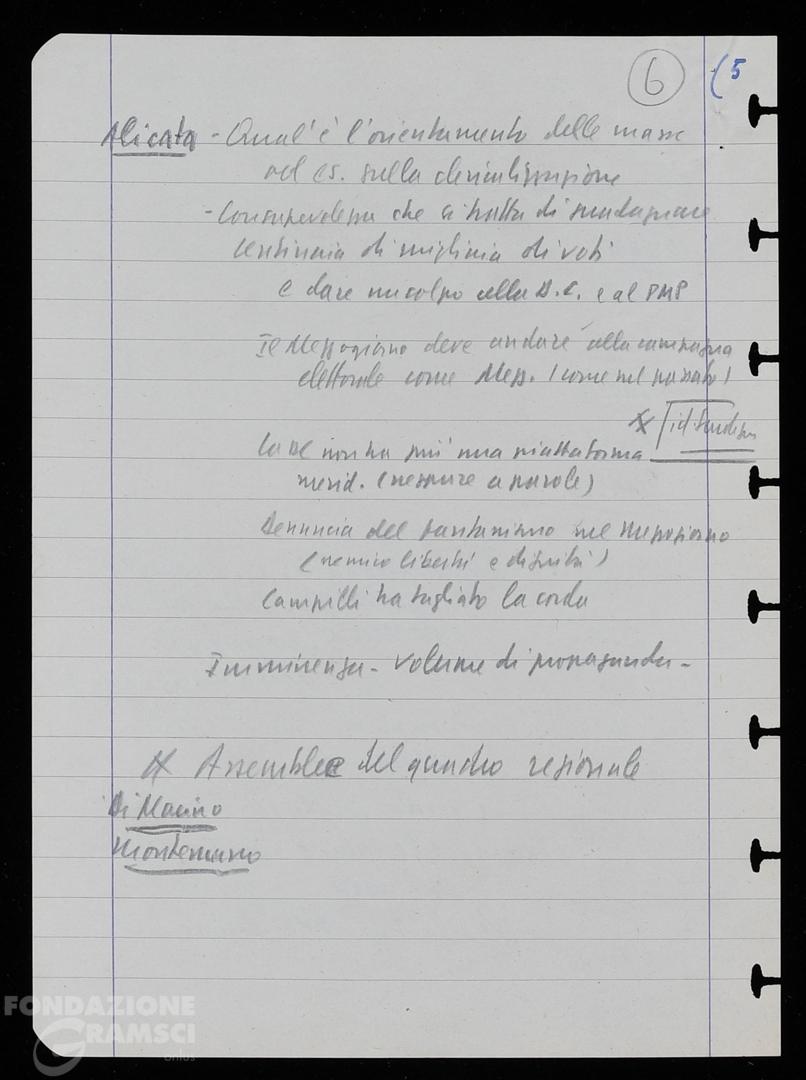 6 (5
Alicata - Qual'è l'orientamento delle masse
ad es. sulla
- Consapevolezza che si tratta di guadagnare
centinaia di migliaia di voti
e dare un colpo alla D.C. e al PMP
Il Mezzogiorno deve andare alla campagna
elettorale come Mezz. (come nel passato)
X
La DC non ha più una piattaforma
merid. (neppure a parole)
Denuncia del nel Mezzogiorno
(nemico libertà e dignità)
Campilli ha tagliato la corda
Imminenza - volume di propaganda -
X Assemblee del quadro regionale
Di Marino
Montemurro
FONDAZIONE
GRAMSCI
onlus